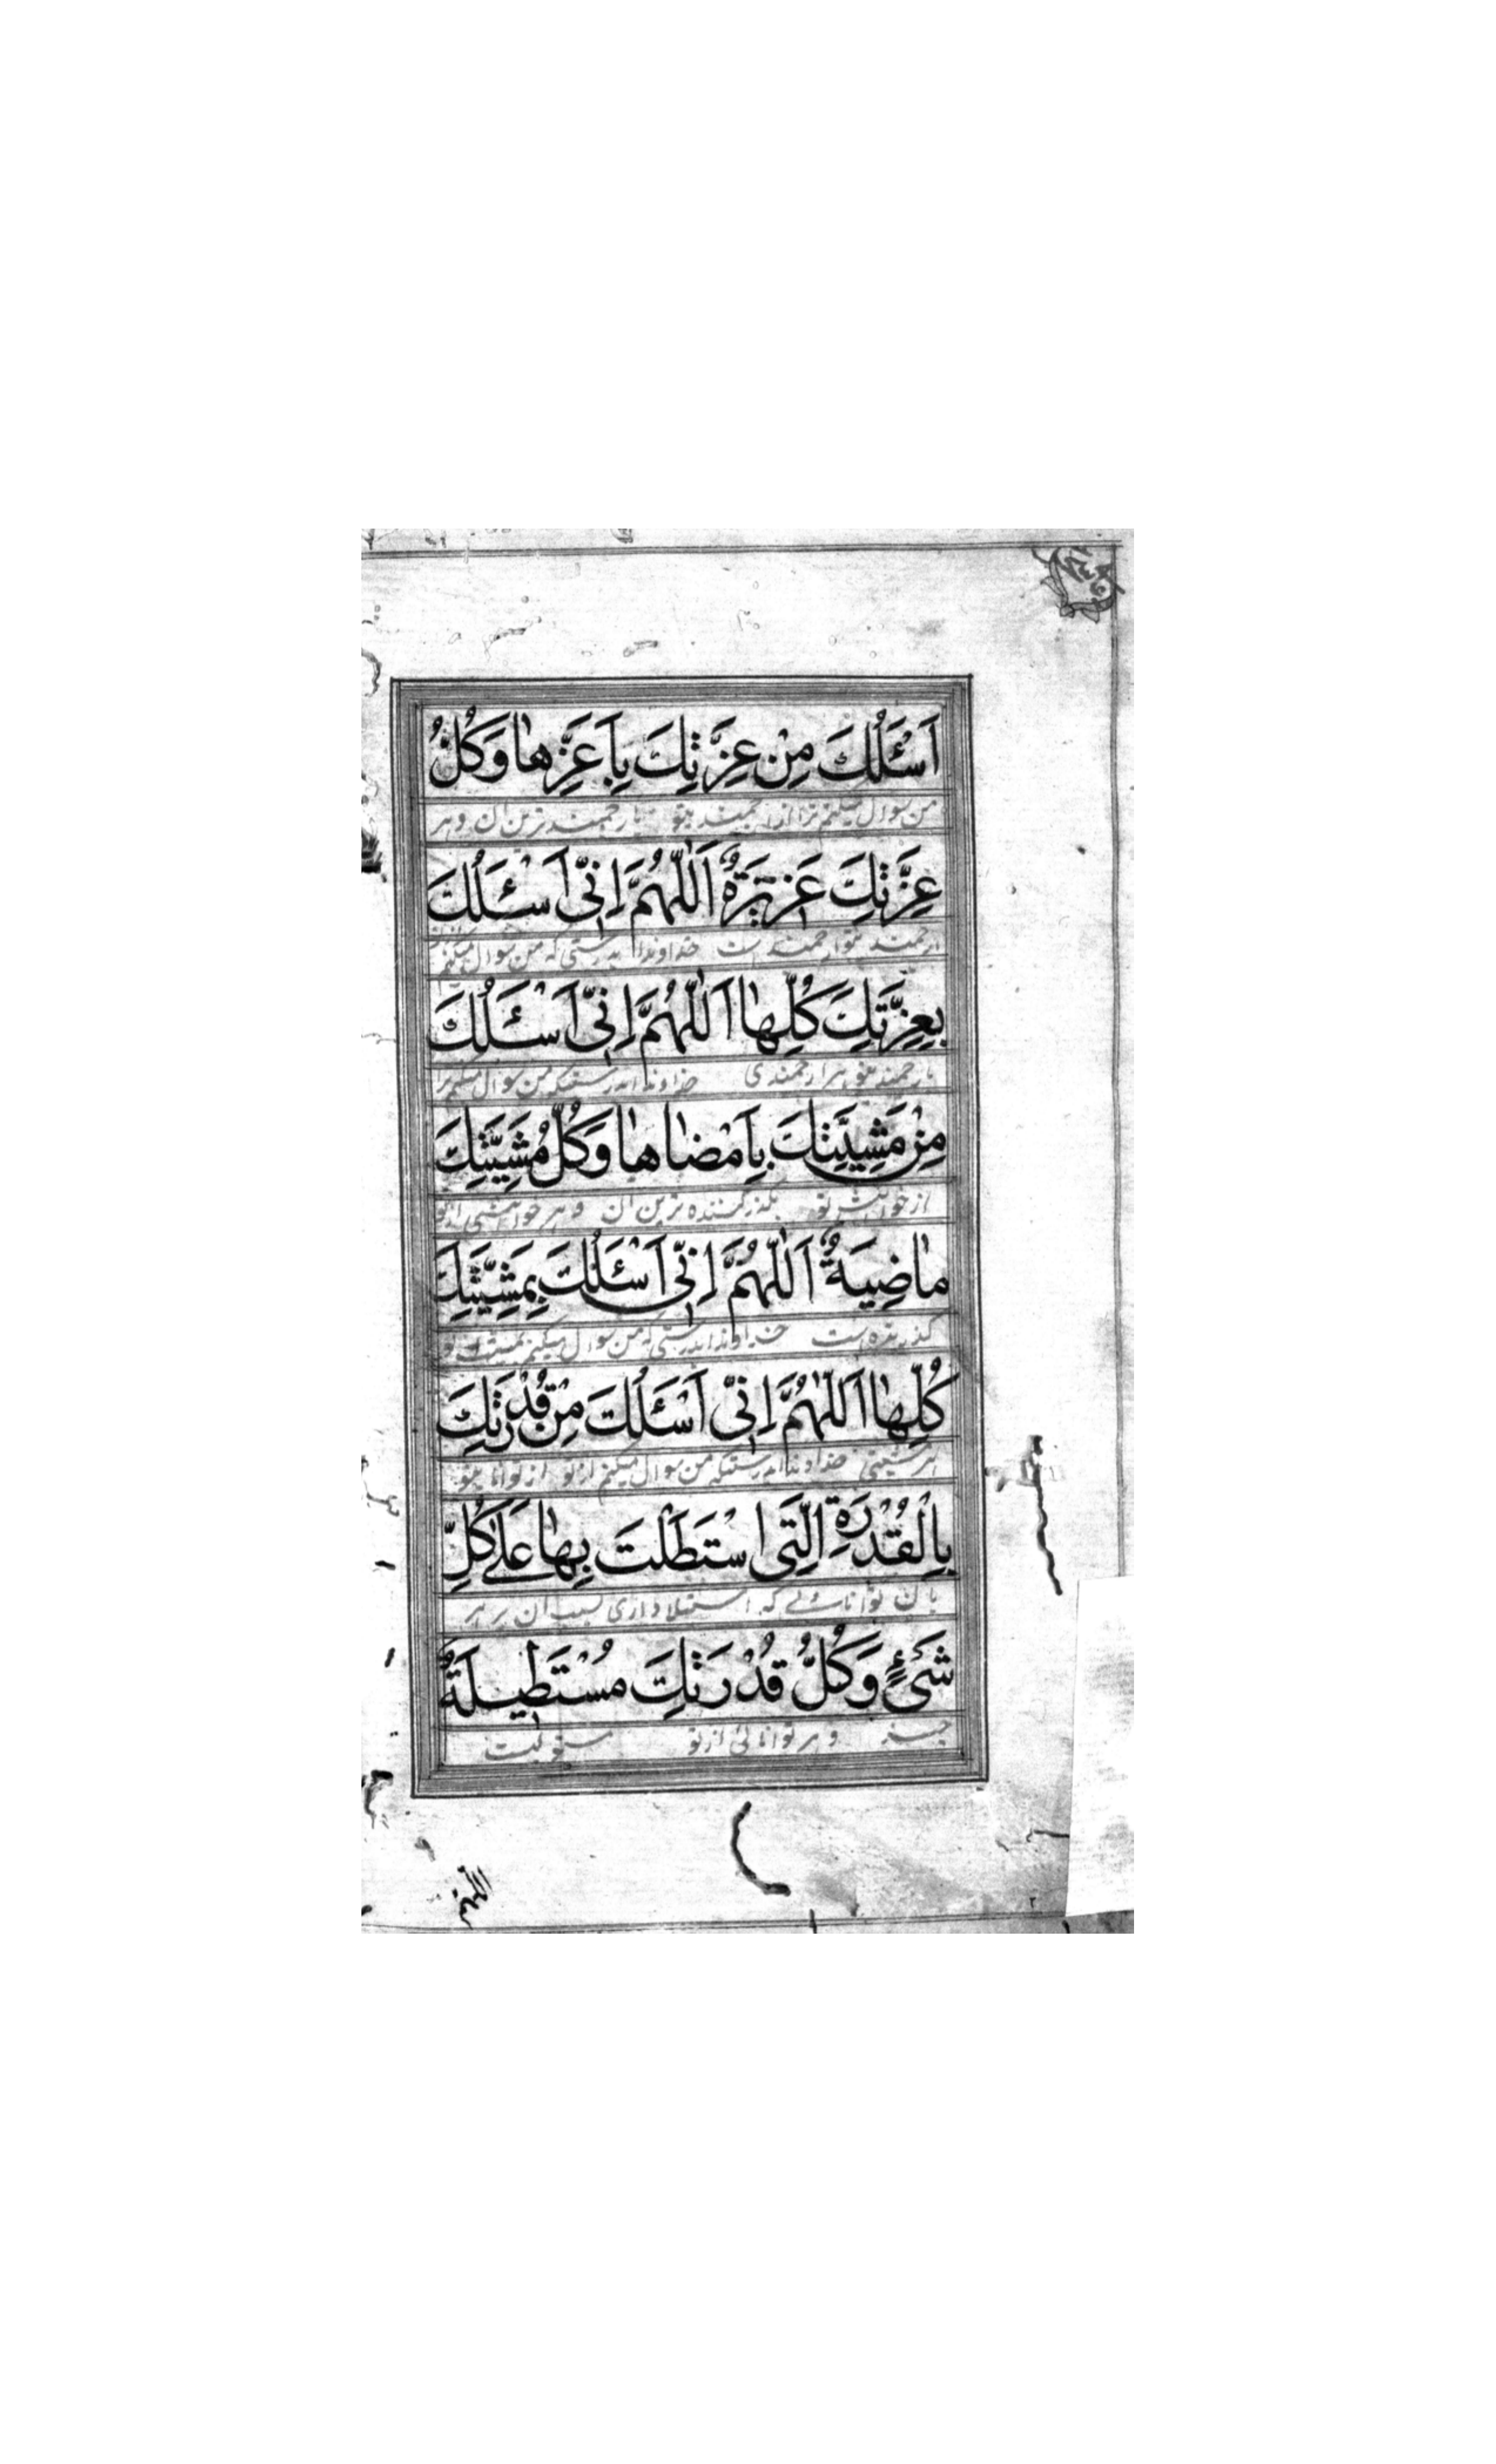 اَسْئَلُكَ مِنْ عِزَّتِكَ بِاَعَزِّهٰا وَكُلُّ
من سوال میکنم ترا از ارجمند یتو بارجمند ترین ان و هر
عِزَّتِكَ عَزيزَةٌ اَللّٰهُمَّ اِنّى اَسْئَلُكَ
ارجمند یتو ارجمند است خداوندا بدرستی که من سوال میکنم
بِعِزَّتِكَ كُلِّهٰا اَللّٰهُمَّ اِنّى اَسْئَلُكَ
بارجمند یتو هر ارجمندی خداوندا بدرستیکه من سوال میکنم
مِنْ مَشِيَّتِكَ بِاَمْضٰاهٰا وَكُلُّ مَشِيَّتِكَ
از خواهش تو بگذرکننده ترین ان و هر خواهشی از تو
مٰاضِيَةٌ اَللّٰهُمَّ اِنّى اَسْئَلُكَ بِمَشِيَّتِكَ
گذرنده است خداوندا بدرستی که من سوال میکنم بمشیت تو
كُلِّهٰا اَللّٰهُمَّ اِنّى اَسْئَلُكَ مِنْ قُدْرَتِكَ
هر مشیتی خداوندا بدرستیکه من سوال میکنم از تو از توانا یتو
بِالْقُدْرَةِ الَّتى اسْتَطَلْتَ بِهٰا عَلٰى كُلِّ
بان توانائے که استیلا داری بسبب ان بر هر
شَىْءٍ وَكُلُّ قُدْرَتِكَ مُسْتَطيلَةٌ
چیز و هر توانائی از تو
اللهم
٢